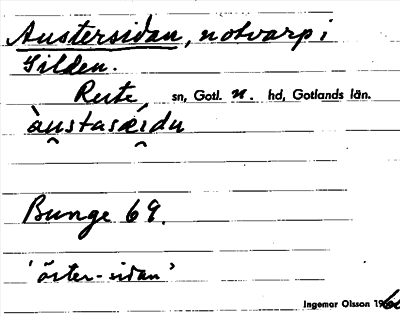 Austersidan, notvarp i
Gilden.
Rute, sn, Gotl. n. hd, Gotlands län.
àu̯stasǽi̯du
Bunge 69.
'öster-sidan'
Ingemar Olsson 1960